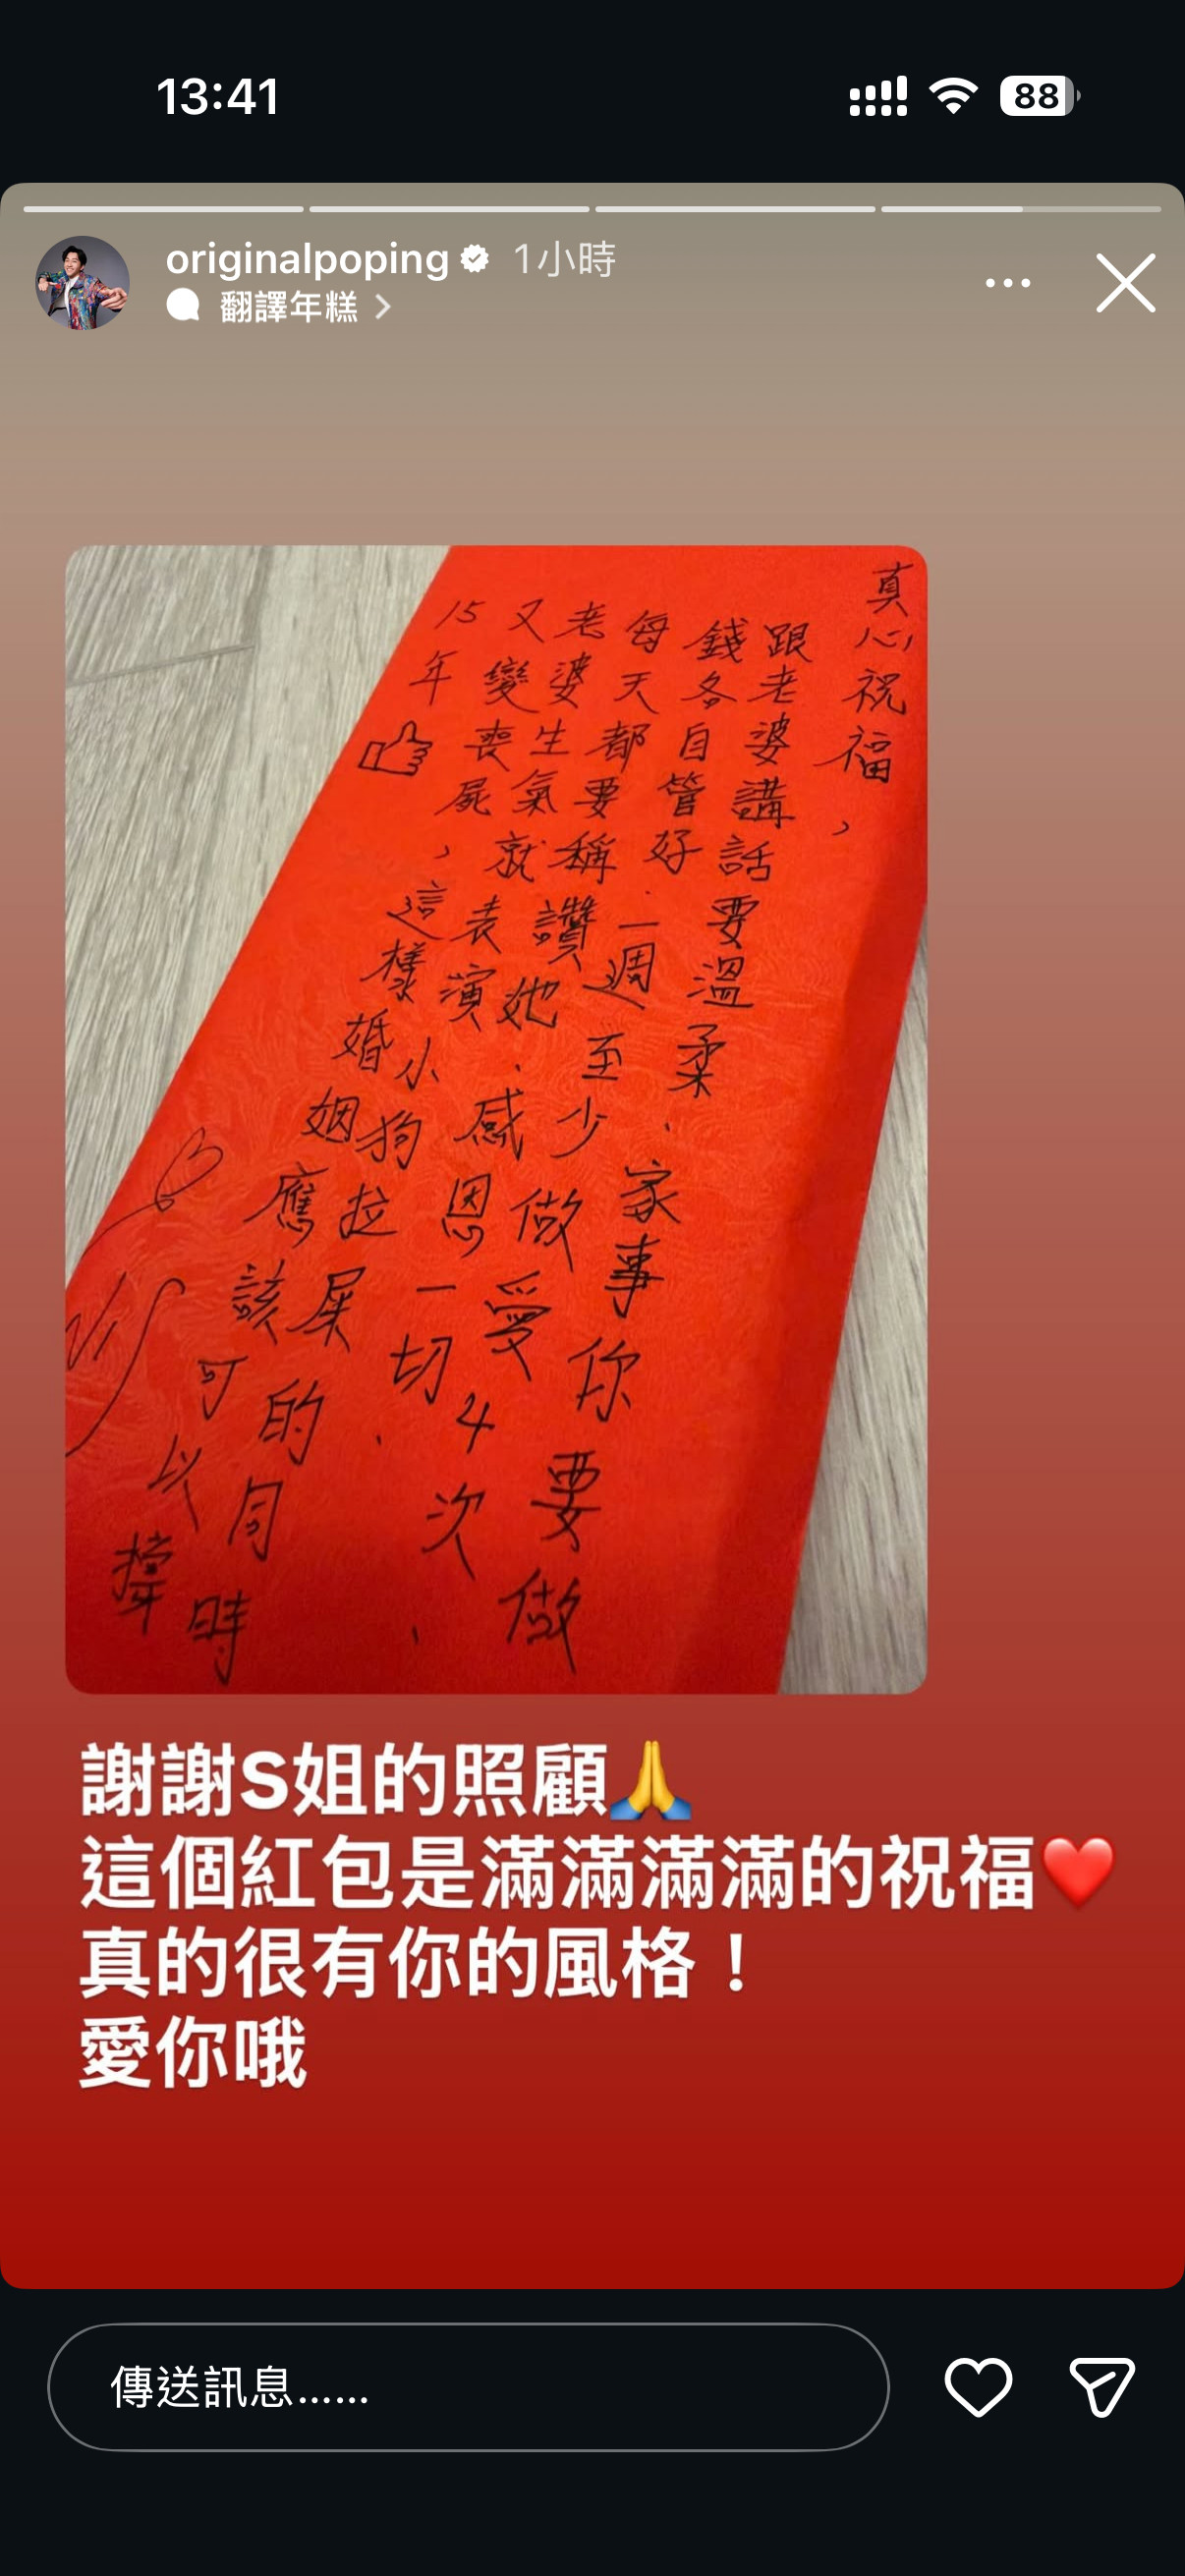 13:41
88
originalpoping 1小時
翻譯年糕
真心祝福，
跟老婆講話要溫柔、家事你要做
錢各自管好、一週至少做愛4次、
每天都要稱讚她、感恩一切、
老婆生氣就表演小狗拉屎的同時
又變喪屍，這樣婚姻應該可以撐
15年
謝謝S姐的照顧🙏
這個紅包是滿滿滿滿的祝福❤️
真的很有你的風格！
愛你哦
傳送訊息......